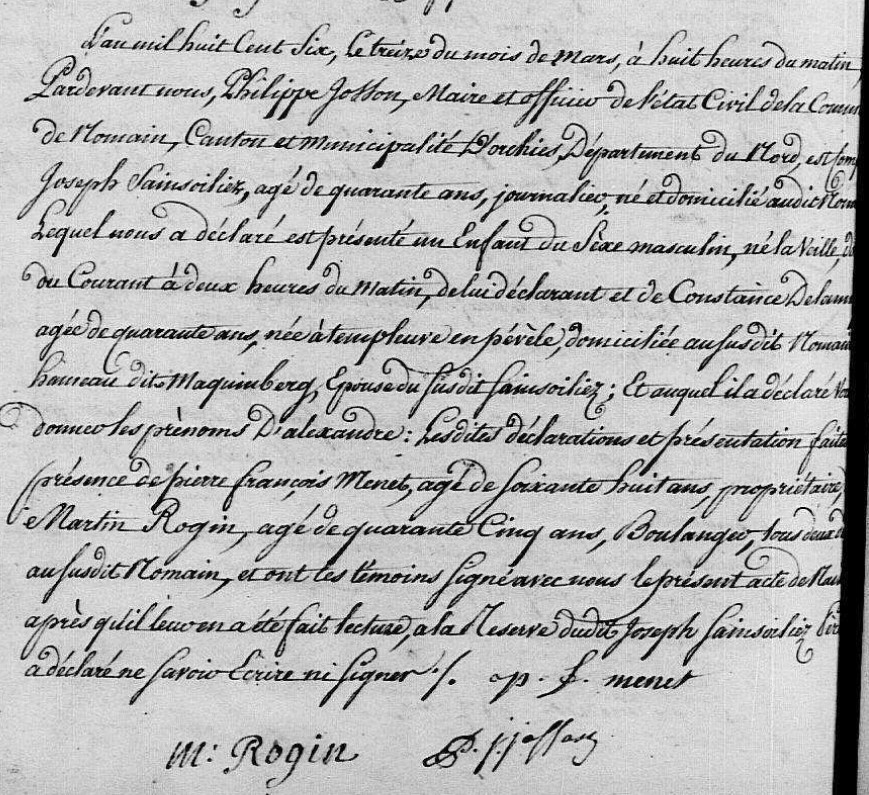 L'an mil huit Cent Six, Le treize du mois de Mars, à huit heures du matin,
Pardevant nous, Philippe Josson, Maire et officier de l'état Civil de la Comm
de Nomain, Canton et Municipalité D'orchies, Département du Nord, est Comp
Joseph Sainsoiliez, agé de quarante ans, journalier, né et domicilié audit Nom
Lequel nous a déclaré est présenté un Enfant du Sèxe masculin, né la Veille, do
du Courant à deux heures du Matin, de lui déclarant et de Constance Delann
agée de quarante ans, née à templeuve en pévèle, domiciliée au susdit Nomain
hameau dit Maquimberg, Epouse du susdit Sainsoiliez; Et auquel il a déclaré Vou
donner les prènoms D'alexandre: Lesdites déclarations et présentation faite
présence de pierre françois Menet, agé de soixante huit ans, propriétaire,
Martin Rogin, agé de quarante Cinq ans, Boulanger, tous deux d
au susdit Nomain, et ont les témoins signé avec nous le présent acte de Nai
après qu'il leur en a été fait lecture, a la Reserve dudit Joseph Sainsoiliez Pèr
a déclaré ne savoir Ecrire ni signer ./. p. f. menet
M: Rogin P. j. josson